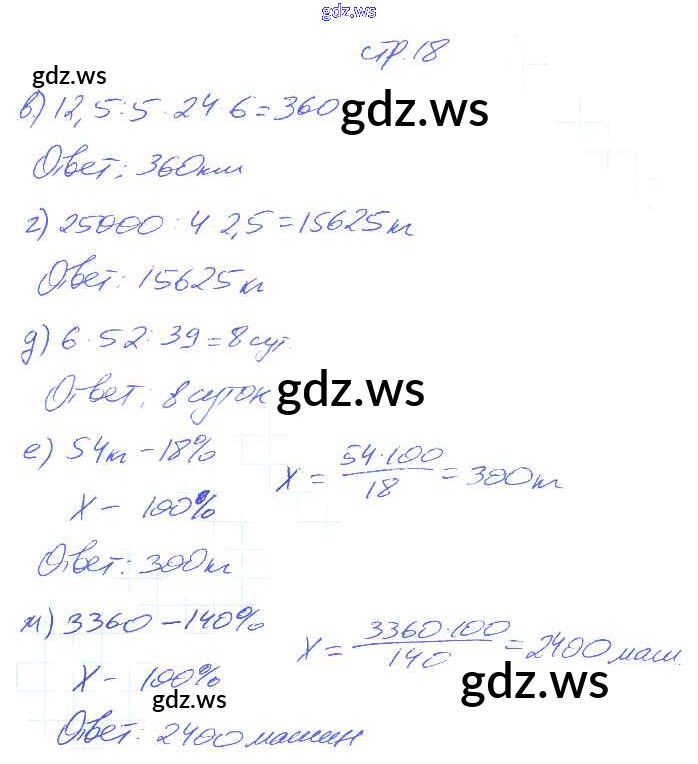 gdz.ws
стр. 18
gdz.ws
в) 12,5 : 5 · 24 · 6 = 360
gdz.ws
Ответ: 360км
г) 25000 : 4 2,5 = 15625кг
Ответ: 15625кг
д) 6 · 52 : 39 = 8 сут.
Ответ: 8 суток
gdz.ws
е) 54кг – 18%
X – 100%
X = 54·100 / 18 = 300кг
Ответ: 300кг
м) 3360 – 140%
X – 100%
X = 3360·100 / 140 = 2400 маш.
gdz.ws
gdz.ws
Ответ: 2400 машин